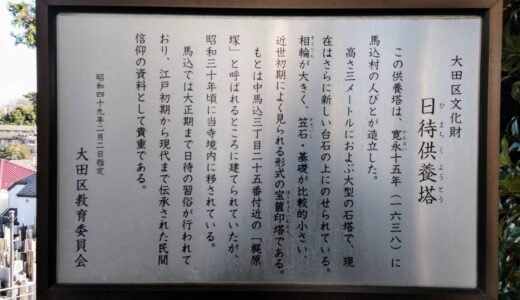 大田区文化財
日待供養塔
ひまちくようとう
この供養塔は、寛永十五年(一六三八)に
馬込村の人びとが造立した。
高さ三メートルにおよぶ大型の石塔で、現
在はさらに新しい台石の上にのせられている。
相輪が大きく、笠石・基礎が比較的小さい、
近世初期によく見られる形式の宝篋印塔である。
もとは中馬込三丁目二十五番付近の「梶原
塚」と呼ばれるところに建てられていたが、
昭和三十年頃に当寺境内に移されている。
馬込では大正期まで日待の習俗が行われて
おり、江戸初期から現代まで伝承された民間
信仰の資料として貴重である。
昭和四十九年二月二日指定
大田区教育委員会